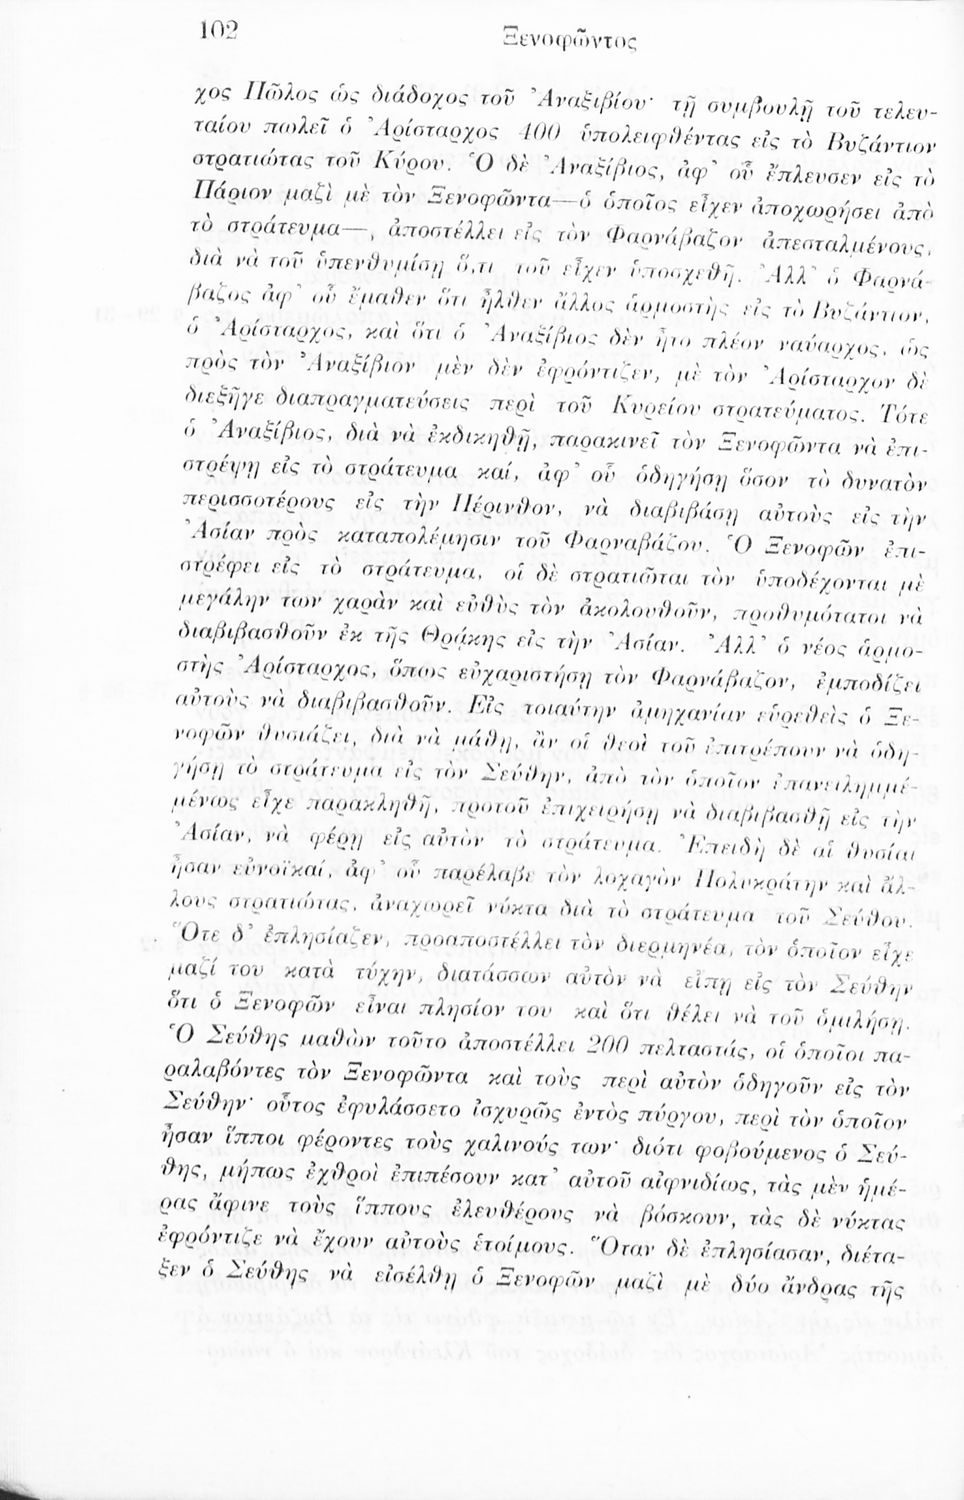 102
Ξενοφῶντος
χος Πῶλος ὡς διάδοχος τοῦ Ἀναξιβίου· τῇ συμβουλῇ τοῦ τελευ-
ταίου πωλεῖ ὁ Ἀρίσταρχος 400 ὑπολειφθέντας εἰς τὸ Βυζάντιον
στρατιώτας τοῦ Κύρου. Ὁ δὲ Ἀναξίβιος, ἀφ' οὗ ἔπλευσεν εἰς τὸ
Πάριον μαζὶ μὲ τὸν Ξενοφῶντα—ὁ ὁποῖος εἶχεν ἀποχωρήσει ἀπὸ
τὸ στράτευμα—, ἀποστέλλει εἰς τὸν Φαρνάβαζον ἀπεσταλμένους,
διὰ νὰ τοῦ ὑπενθυμίσῃ ὅ,τι τοῦ εἶχεν ὑποσχεθῆ. Ἀλλ' ὁ Φαρνά-
βαζος ἀφ' οὗ ἔμαθεν ὅτι ἦλθεν ἄλλος ἁρμοστὴς εἰς τὸ Βυζάντιον,
ὁ Ἀρίσταρχος, καὶ ὅτι ὁ Ἀναξίβιος δὲν ἦτο πλέον ναύαρχος, ὡς
πρὸς τὸν Ἀναξίβιον μὲν δὲν ἐφρόντιζεν, μὲ τὸν Ἀρίσταρχον δὲ
διεξῆγε διαπραγματεύσεις περὶ τοῦ Κυρείου στρατεύματος. Τότε
ὁ Ἀναξίβιος, διὰ νὰ ἐκδικηθῇ, παρακινεῖ τὸν Ξενοφῶντα νὰ ἐπι-
στρέψῃ εἰς τὸ στράτευμα καί, ἀφ' οὗ ὁδηγήσῃ ὅσον τὸ δυνατὸν
περισσοτέρους εἰς τὴν Πέρινθον, νὰ διαβιβάσῃ αὐτοὺς εἰς τὴν
Ἀσίαν πρὸς καταπολέμησιν τοῦ Φαρναβάζου. Ὁ Ξενοφῶν ἐπι-
στρέφει εἰς τὸ στράτευμα, οἱ δὲ στρατιῶται τὸν ὑποδέχονται μὲ
μεγάλην των χαρὰν καὶ εὐθὺς τὸν ἀκολουθοῦν, προθυμότατοι νὰ
διαβιβασθοῦν ἐκ τῆς Θράκης εἰς τὴν Ἀσίαν. Ἀλλ' ὁ νέος ἁρμο-
στὴς Ἀρίσταρχος, ὅπως εὐχαριστήσῃ τὸν Φαρνάβαζον, ἐμποδίζει
αὐτοὺς νὰ διαβιβασθοῦν. Εἰς τοιαύτην ἀμηχανίαν εὑρεθεὶς ὁ Ξε-
νοφῶν θυσιάζει, διὰ νὰ μάθῃ, ἂν οἱ θεοὶ τοῦ ἐπιτρέπουν νὰ ὁδη-
γήσῃ τὸ στράτευμα εἰς τὸν Σεύθην, ἀπὸ τὸν ὁποῖον ἐπανειλημμέ-
μένως εἶχε παρακληθῆ, προτοῦ ἐπιχειρήσῃ νὰ διαβιβασθῇ εἰς τὴν
Ἀσίαν, νὰ φέρῃ εἰς αὐτὸν τὸ στράτευμα. Ἐπειδὴ δὲ αἱ θυσίαι
ἦσαν εὐνοϊκαί, ἀφ' οὗ παρέλαβε τὸν λοχαγὸν Πολυκράτην καὶ ἄλ-
λους στρατιώτας, ἀναχωρεῖ νύκτα διὰ τὸ στράτευμα τοῦ Σεύθου.
Ὅτε δ' ἐπλησίαζεν, προαποστέλλει τὸν διερμηνέα, τὸν ὁποῖον εἶχε
μαζί του κατὰ τύχην, διατάσσων αὐτὸν νὰ εἴπῃ εἰς τὸν Σεύθην
ὅτι ὁ Ξενοφῶν εἶναι πλησίον του καὶ ὅτι θέλει νὰ τοῦ ὁμιλήσῃ.
Ὁ Σεύθης μαθὼν τοῦτο ἀποστέλλει 200 πελταστάς, οἱ ὁποῖοι πα-
ραλαβόντες τὸν Ξενοφῶντα καὶ τοὺς περὶ αὐτὸν ὁδηγοῦν εἰς τὸν
Σεύθην· οὗτος ἐφυλάσσετο ἰσχυρῶς ἐντὸς πύργου, περὶ τὸν ὁποῖον
ἦσαν ἵπποι φέροντες τοὺς χαλινούς των· διότι φοβούμενος ὁ Σεύ-
θης, μήπως ἐχθροὶ ἐπιπέσουν κατ' αὐτοῦ αἰφνιδίως, τὰς μὲν ἡμέ-
ρας ἄφινε τοὺς ἵππους ἐλευθέρους νὰ βόσκουν, τὰς δὲ νύκτας
ἐφρόντιζε νὰ ἔχουν αὐτοὺς ἑτοίμους. Ὅταν δὲ ἐπλησίασαν, διέτα-
ξεν ὁ Σεύθης νὰ εἰσέλθῃ ὁ Ξενοφῶν μαζὶ μὲ δύο ἄνδρας τῆς